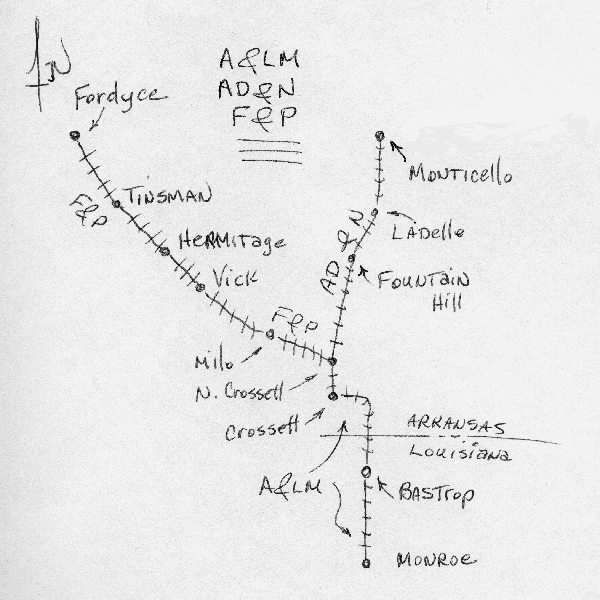 N
A&LM
AD&N
F&P
Fordyce
Monticello
Tinsman
F&P
Ladelle
Hermitage
AD & N
Fountain
Hill
Vick
F&P
Milo
N. Crossett
Crossett
Arkansas
Louisiana
A&LM
Bastrop
Monroe